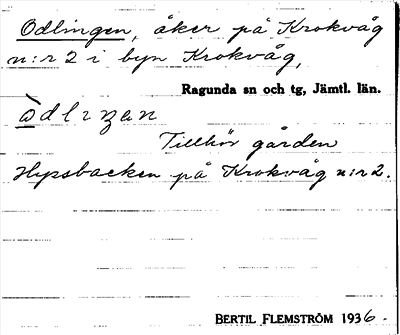 Odlingen, åker på Krokvåg
n:r 2 i byn Krokvåg,
Ragunda sn och tg, Jämtl. län.
Tillhör gården
Hypsbacken på Krokvåg n:r 2.
BERTIL FLEMSTRÖM 1936.